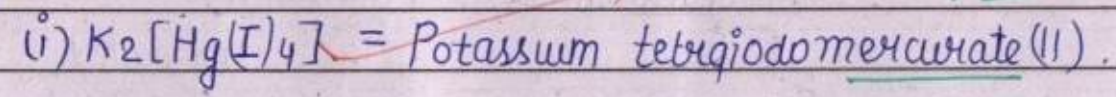 (i) K2[Hg(I)4] = Potassium tetraiodomercurate (II).